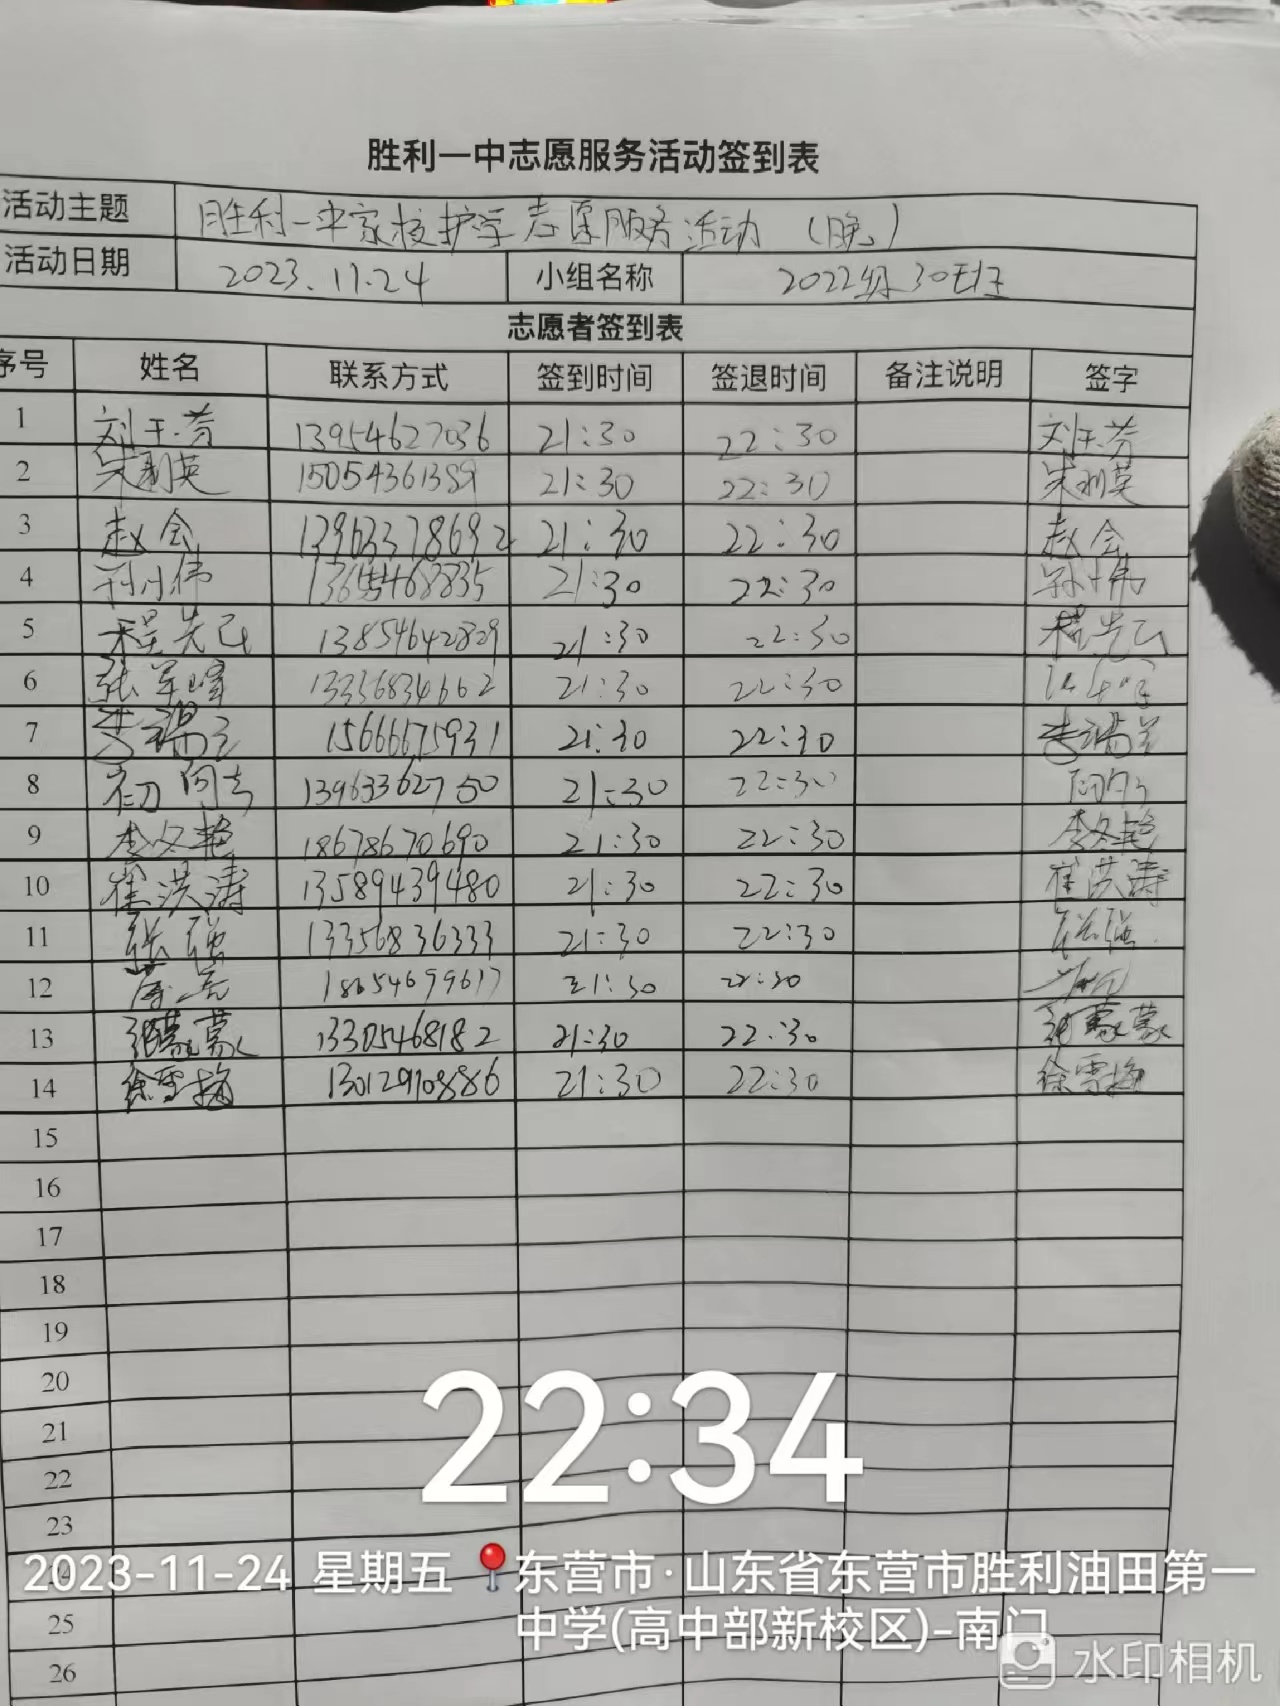 胜利一中志愿服务活动签到表
活动主题 胜利一中家校护学志愿服务活动 (晚)
活动日期 2023.11.24 小组名称 2022级30班
志愿者签到表
序号 姓名 联系方式 签到时间 签退时间 备注说明 签字
1 刘玉芬 13954627036 21:30 22:30 刘玉芬
2 宋利英 15054361389 21:30 22:30 宋利英
3 赵会 13963378692 21:30 22:30 赵会
4 21:30 22:30
5 程先己 13854642829 21:30 22:30 程先己
6 张军峰 13356834662 21:30 22:30
7 李瑞兰 15666675931 21:30 22:30 李瑞兰
8 13963362750 21:30 22:30
9 李文艳 18678670690 21:30 22:30 李文艳
10 崔洪涛 13589439480 21:30 22:30 崔洪涛
11 张强 13356836333 21:30 22:30 张强
12 18654699617 21:30 22:30
13 张蒙蒙 13305468182 21:30 22:30 张蒙蒙
14 徐雪梅 130129108886 21:30 22:30 徐雪梅
15
16
17
18
19
20
21
22
23
22:34
2023-11-24 星期五 东营市·山东省东营市胜利油田第一
中学(高中部新校区)-南门
25
26
水印相机